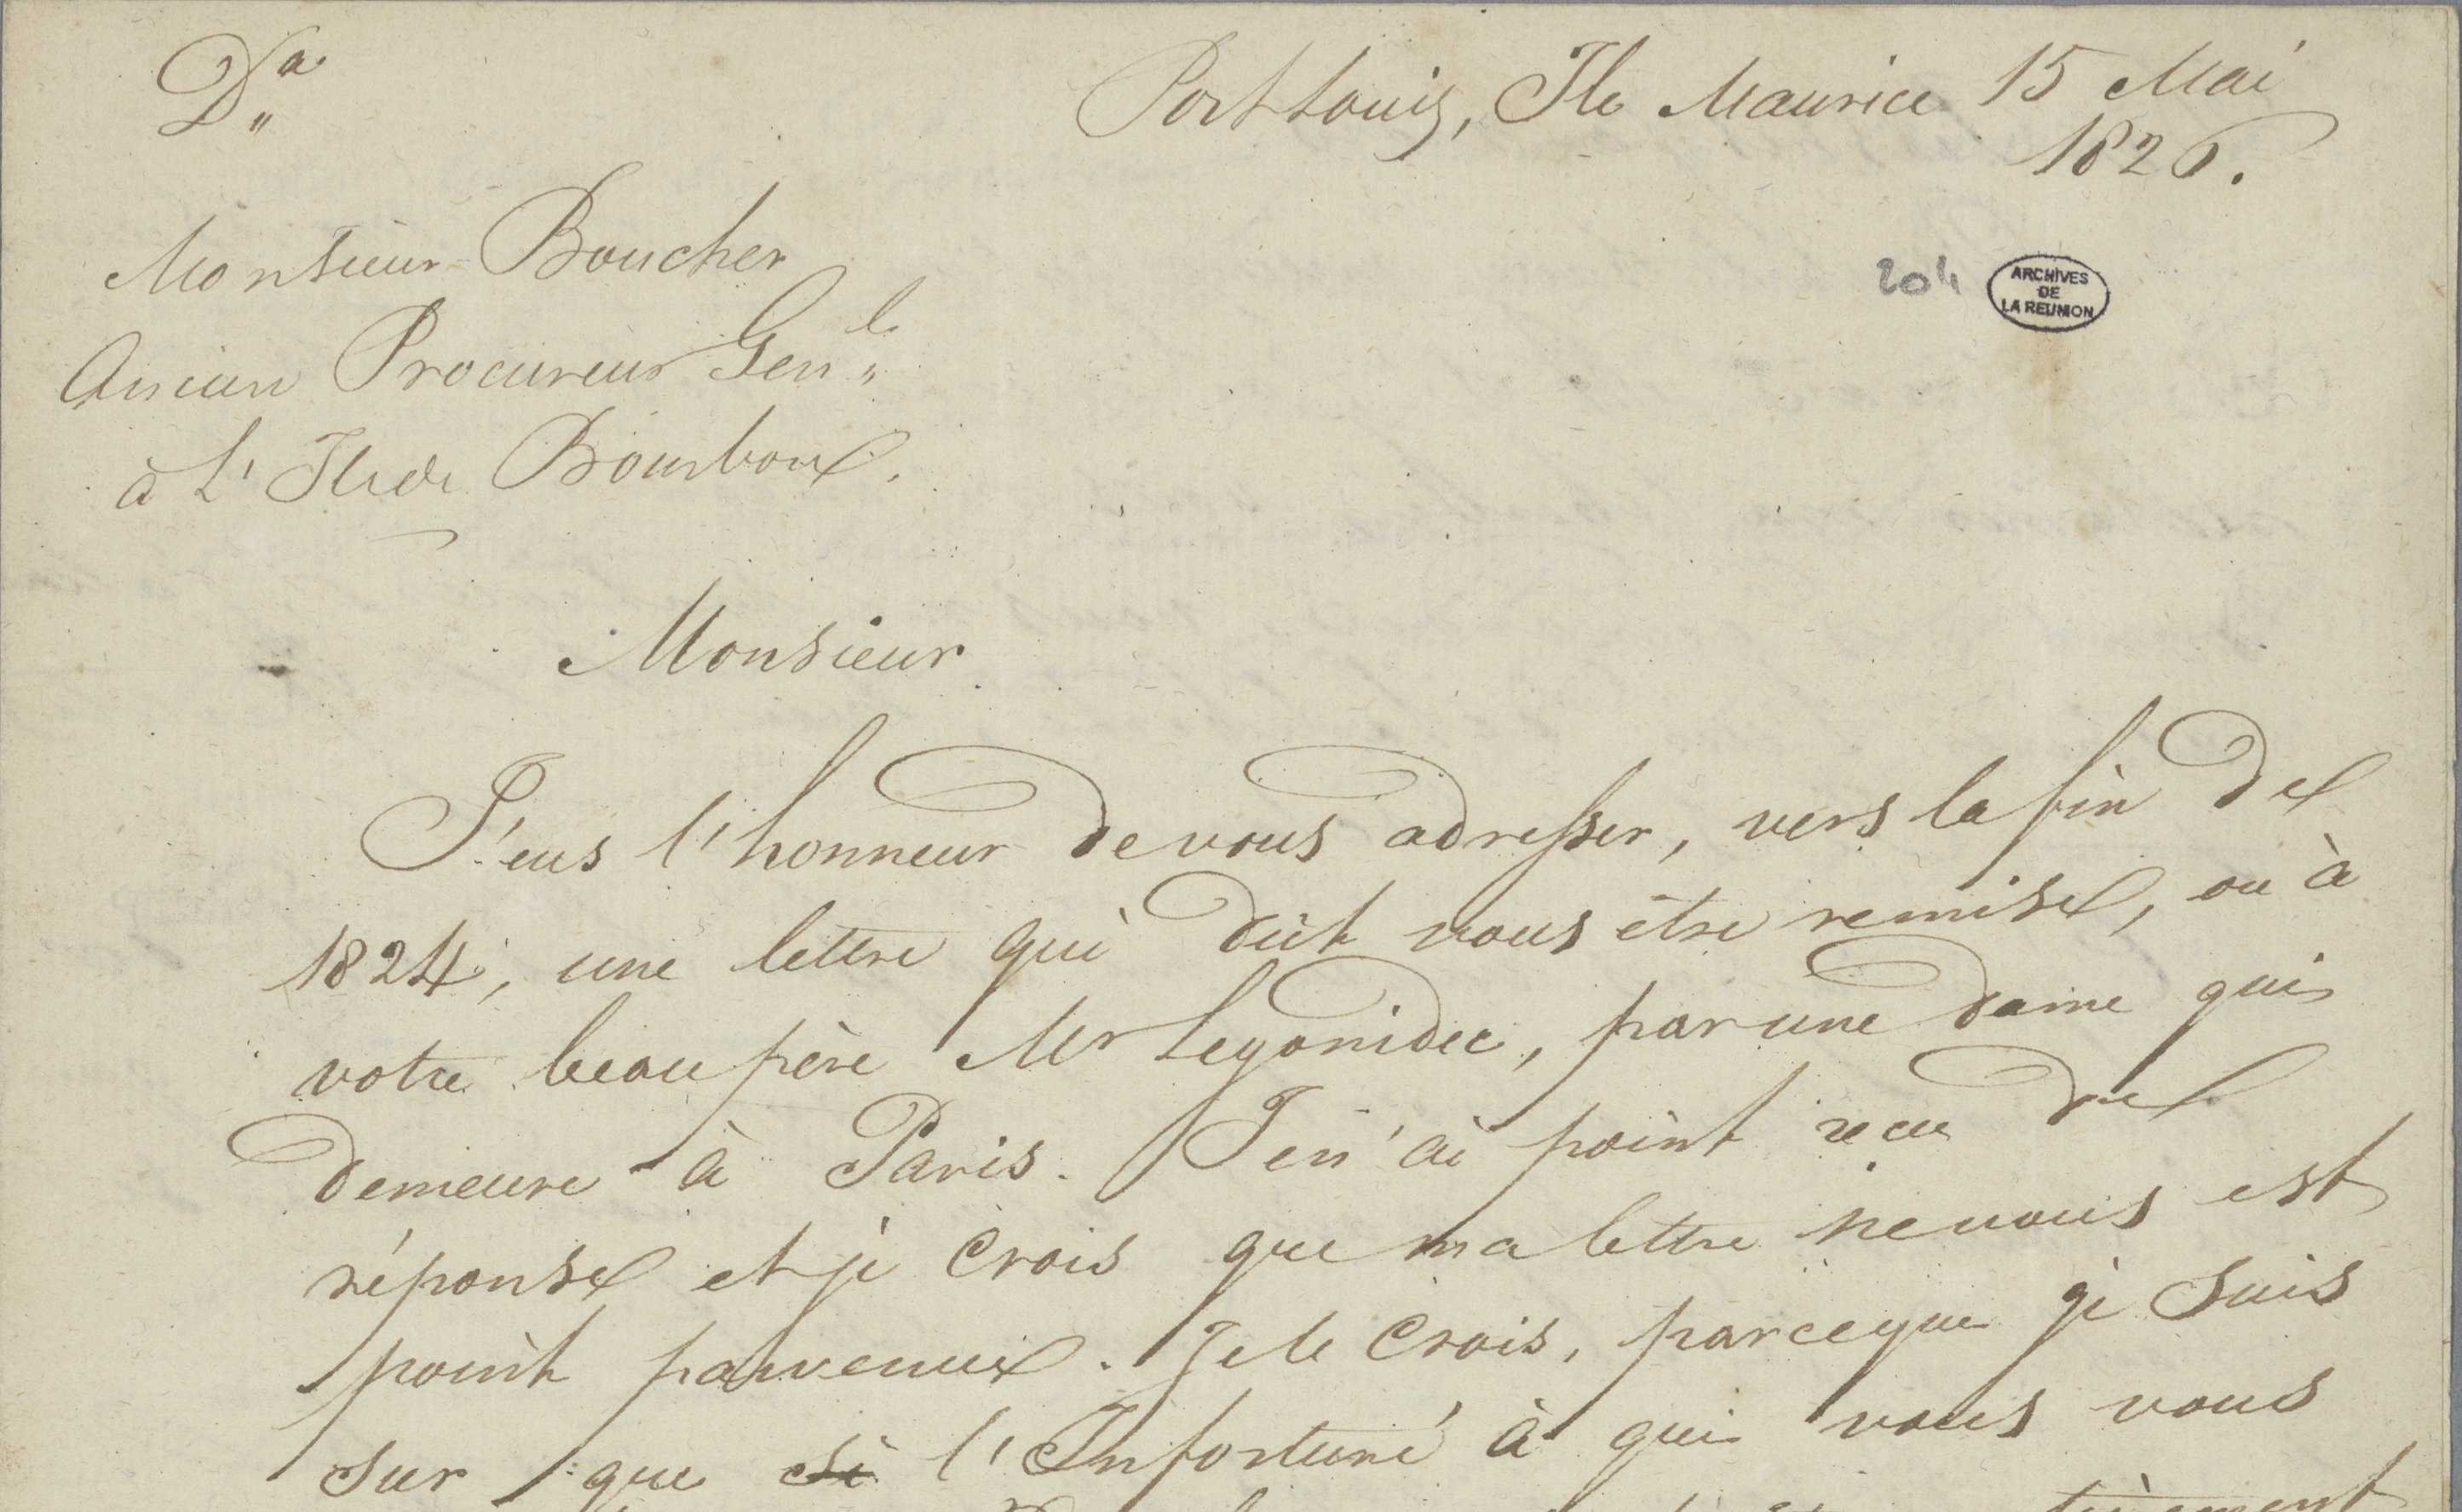 Da
Port Louis, Ile Maurice 15 Mai
1826.
204
ARCHIVES
DE
LA REUNION
Monsieur Boucher
Ancien Procureur Genl
à L'Ile de Bourbon.
Monsieur
J'eus l'honneur de vous adresser, vers la fin de
1824, une lettre qui dût vous être remise, ou à
votre beau père Mr Legonidec, par une dame qui
demeure à Paris. Je n'ai point reçu de
réponse et je Crois que ma lettre ne vous est
point parvenue. Je le Crois, parceque je Suis
Sur que si l'Infortuné à qui vous vous